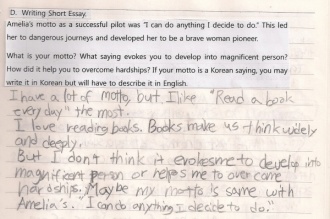 D. Writing Short Essay.
Amelia's moto as a successful pilot was "I can do anything I decide to do." This led
her to dangerous journeys and developed her to be a brave woman pioneer.
What is your moto? What saying evokes you to develop into magnificent person?
How did it help you to overcome hardships? If your motto is a Korean saying, you may
write it in Korean but will have to describe it in English.
I have a lot of motto, but I like "Read a book
every day" the most.
I love reading books. Books make us think widely
and deeply.
But I don't think it evokesme to develop into
magnificent person or helps me to over come
hardships. Maybe my motto is same with
Amelia's. "I can do anything I decide to do."